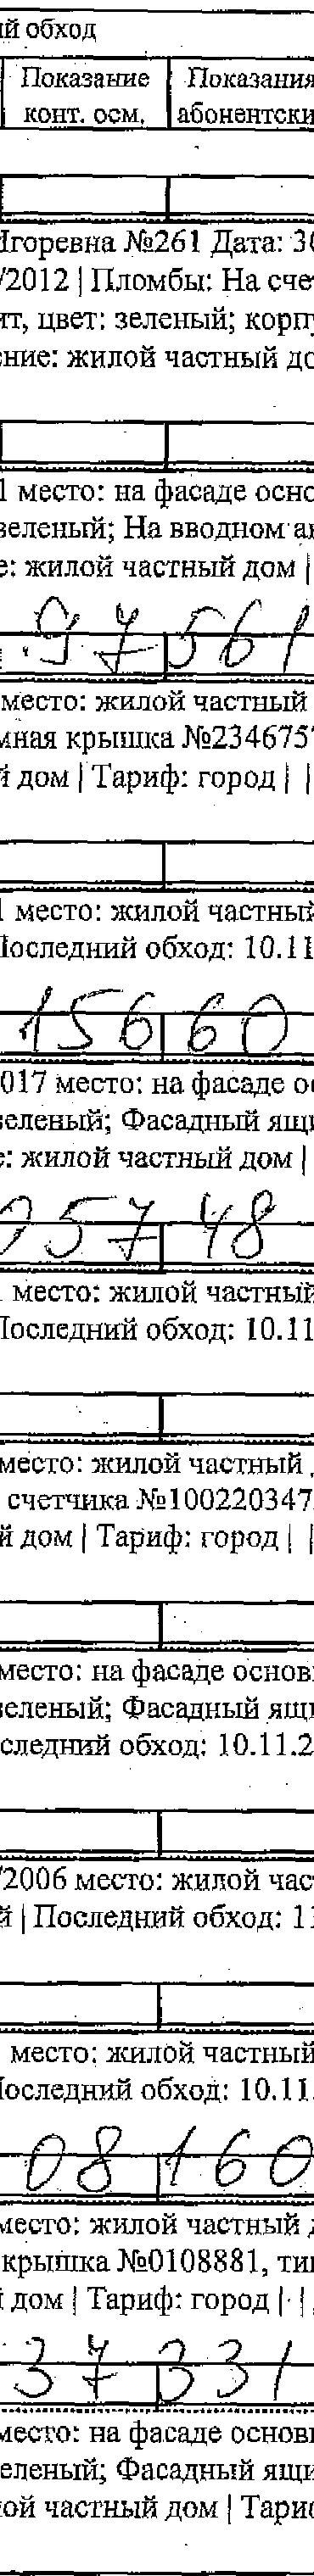 ый обход
Показание Показания
конт. осм. абонентски
Игоревна №261 Дата: 30
/2012 | Пломбы: На сче
ит, цвет: зеленый; корпу
ение: жилой частный до
1 место: на фасаде осно
зеленый; На вводном ав
е: жилой частный дом |
97561
место: жилой частный
мная крышка №2346757
й дом | Тариф: город | |
1 место: жилой частный
Последний обход: 10.11
15660
017 место: на фасаде ос
зеленый; Фасадный ящи
е: жилой частный дом |
05748
место: жилой частный
Последний обход: 10.11
место: жилой частный д
счетчика №100220347
й дом | Тариф: город | |
место: на фасаде основн
зеленый; Фасадный ящи
следний обход: 10.11.2
/2006 место: жилой час
й | Последний обход: 11
место: жилой частный
Последний обход: 10.11.
08160
место: жилой частный д
крышка №0108881, ти
й дом | Тариф: город | |
37331
место: на фасаде основн
зеленый; Фасадный ящи
ой частный дом | Тари